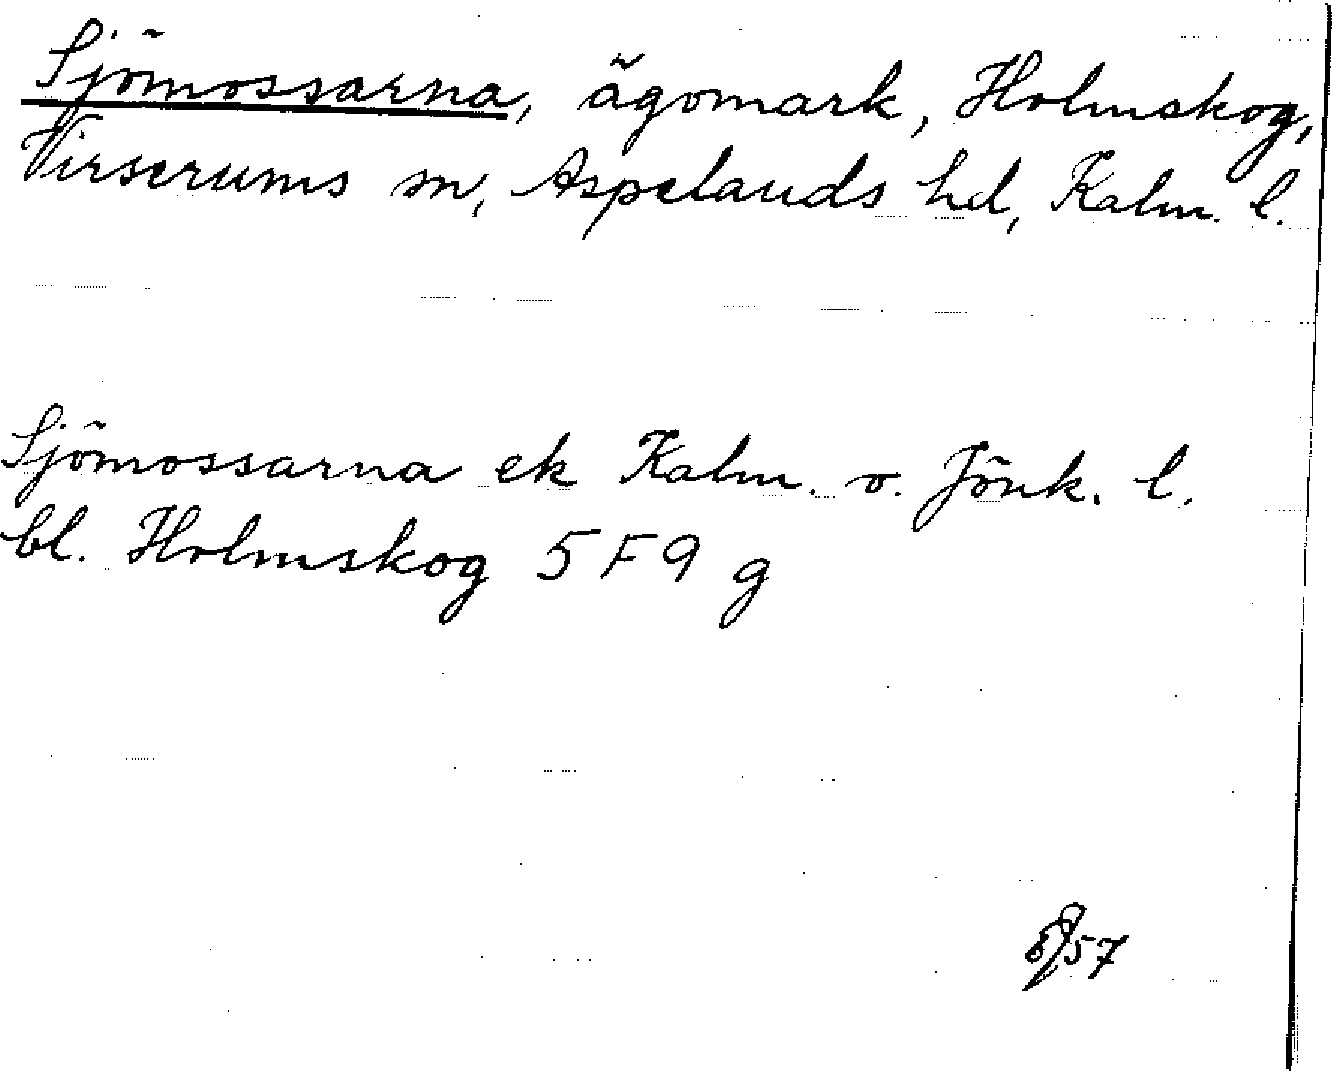 Sjömossarna, ägomark, Holmskog,
Virserums sn, Aspelands hd, Kalm. l.
Sjömossarna ek Kalm. o. Jönk. l.
bl. Holmskog 5 F 9 g